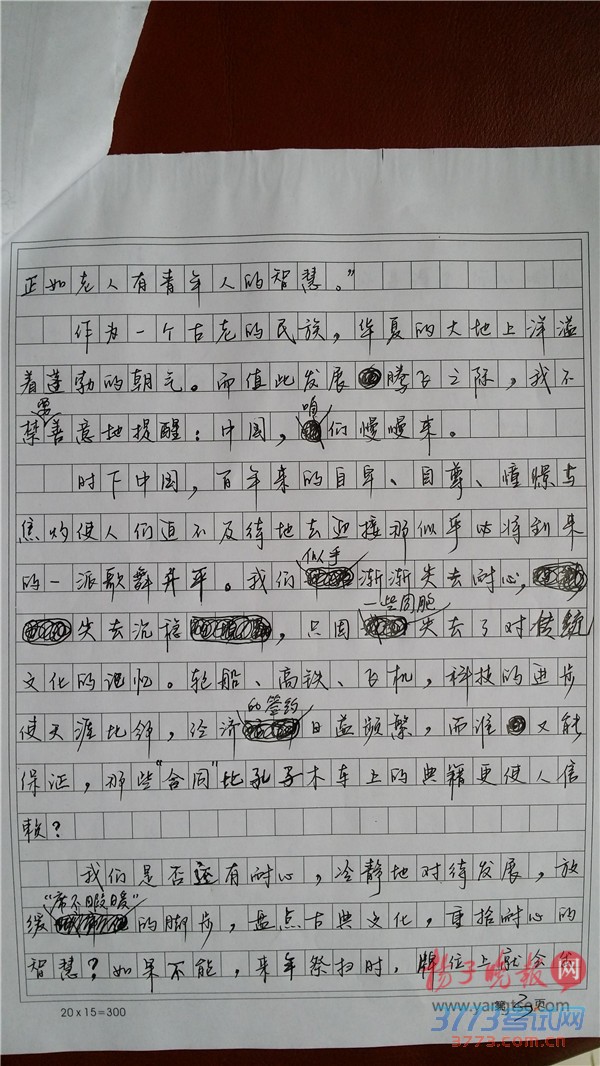 正如老人有青年人的智慧。”
作为一个古老的民族，华夏的大地上洋溢
着蓬勃的朝气。而值此发展腾飞之际，我不
禁要善意地提醒：中国，咱们慢慢来。
时下中国，百年来的自卑、自尊、憧憬与
焦灼使人们迫不及待地去迎接那似乎必将到来
的一派歌舞升平。我们似乎渐渐失去耐心，
失去沉稳，只因一些同胞失去了对传统
文化的记忆。轮船、高铁、飞机，科技的进步
使天涯比邻，经济的签约日益频繁，而谁又能
保证，那些“合同”比孔子木车上的典籍更使人信
赖？
我们是否还有耐心，冷静地对待发展，放
缓“席不暇暖”的脚步，盘点古典文化，重拾耐心的
智慧？如果不能，来年祭扫时，牌位上就会
扬子晚报网
www.yangtse.com
第3页
20x15=300
3773考试网
3773.com.cn